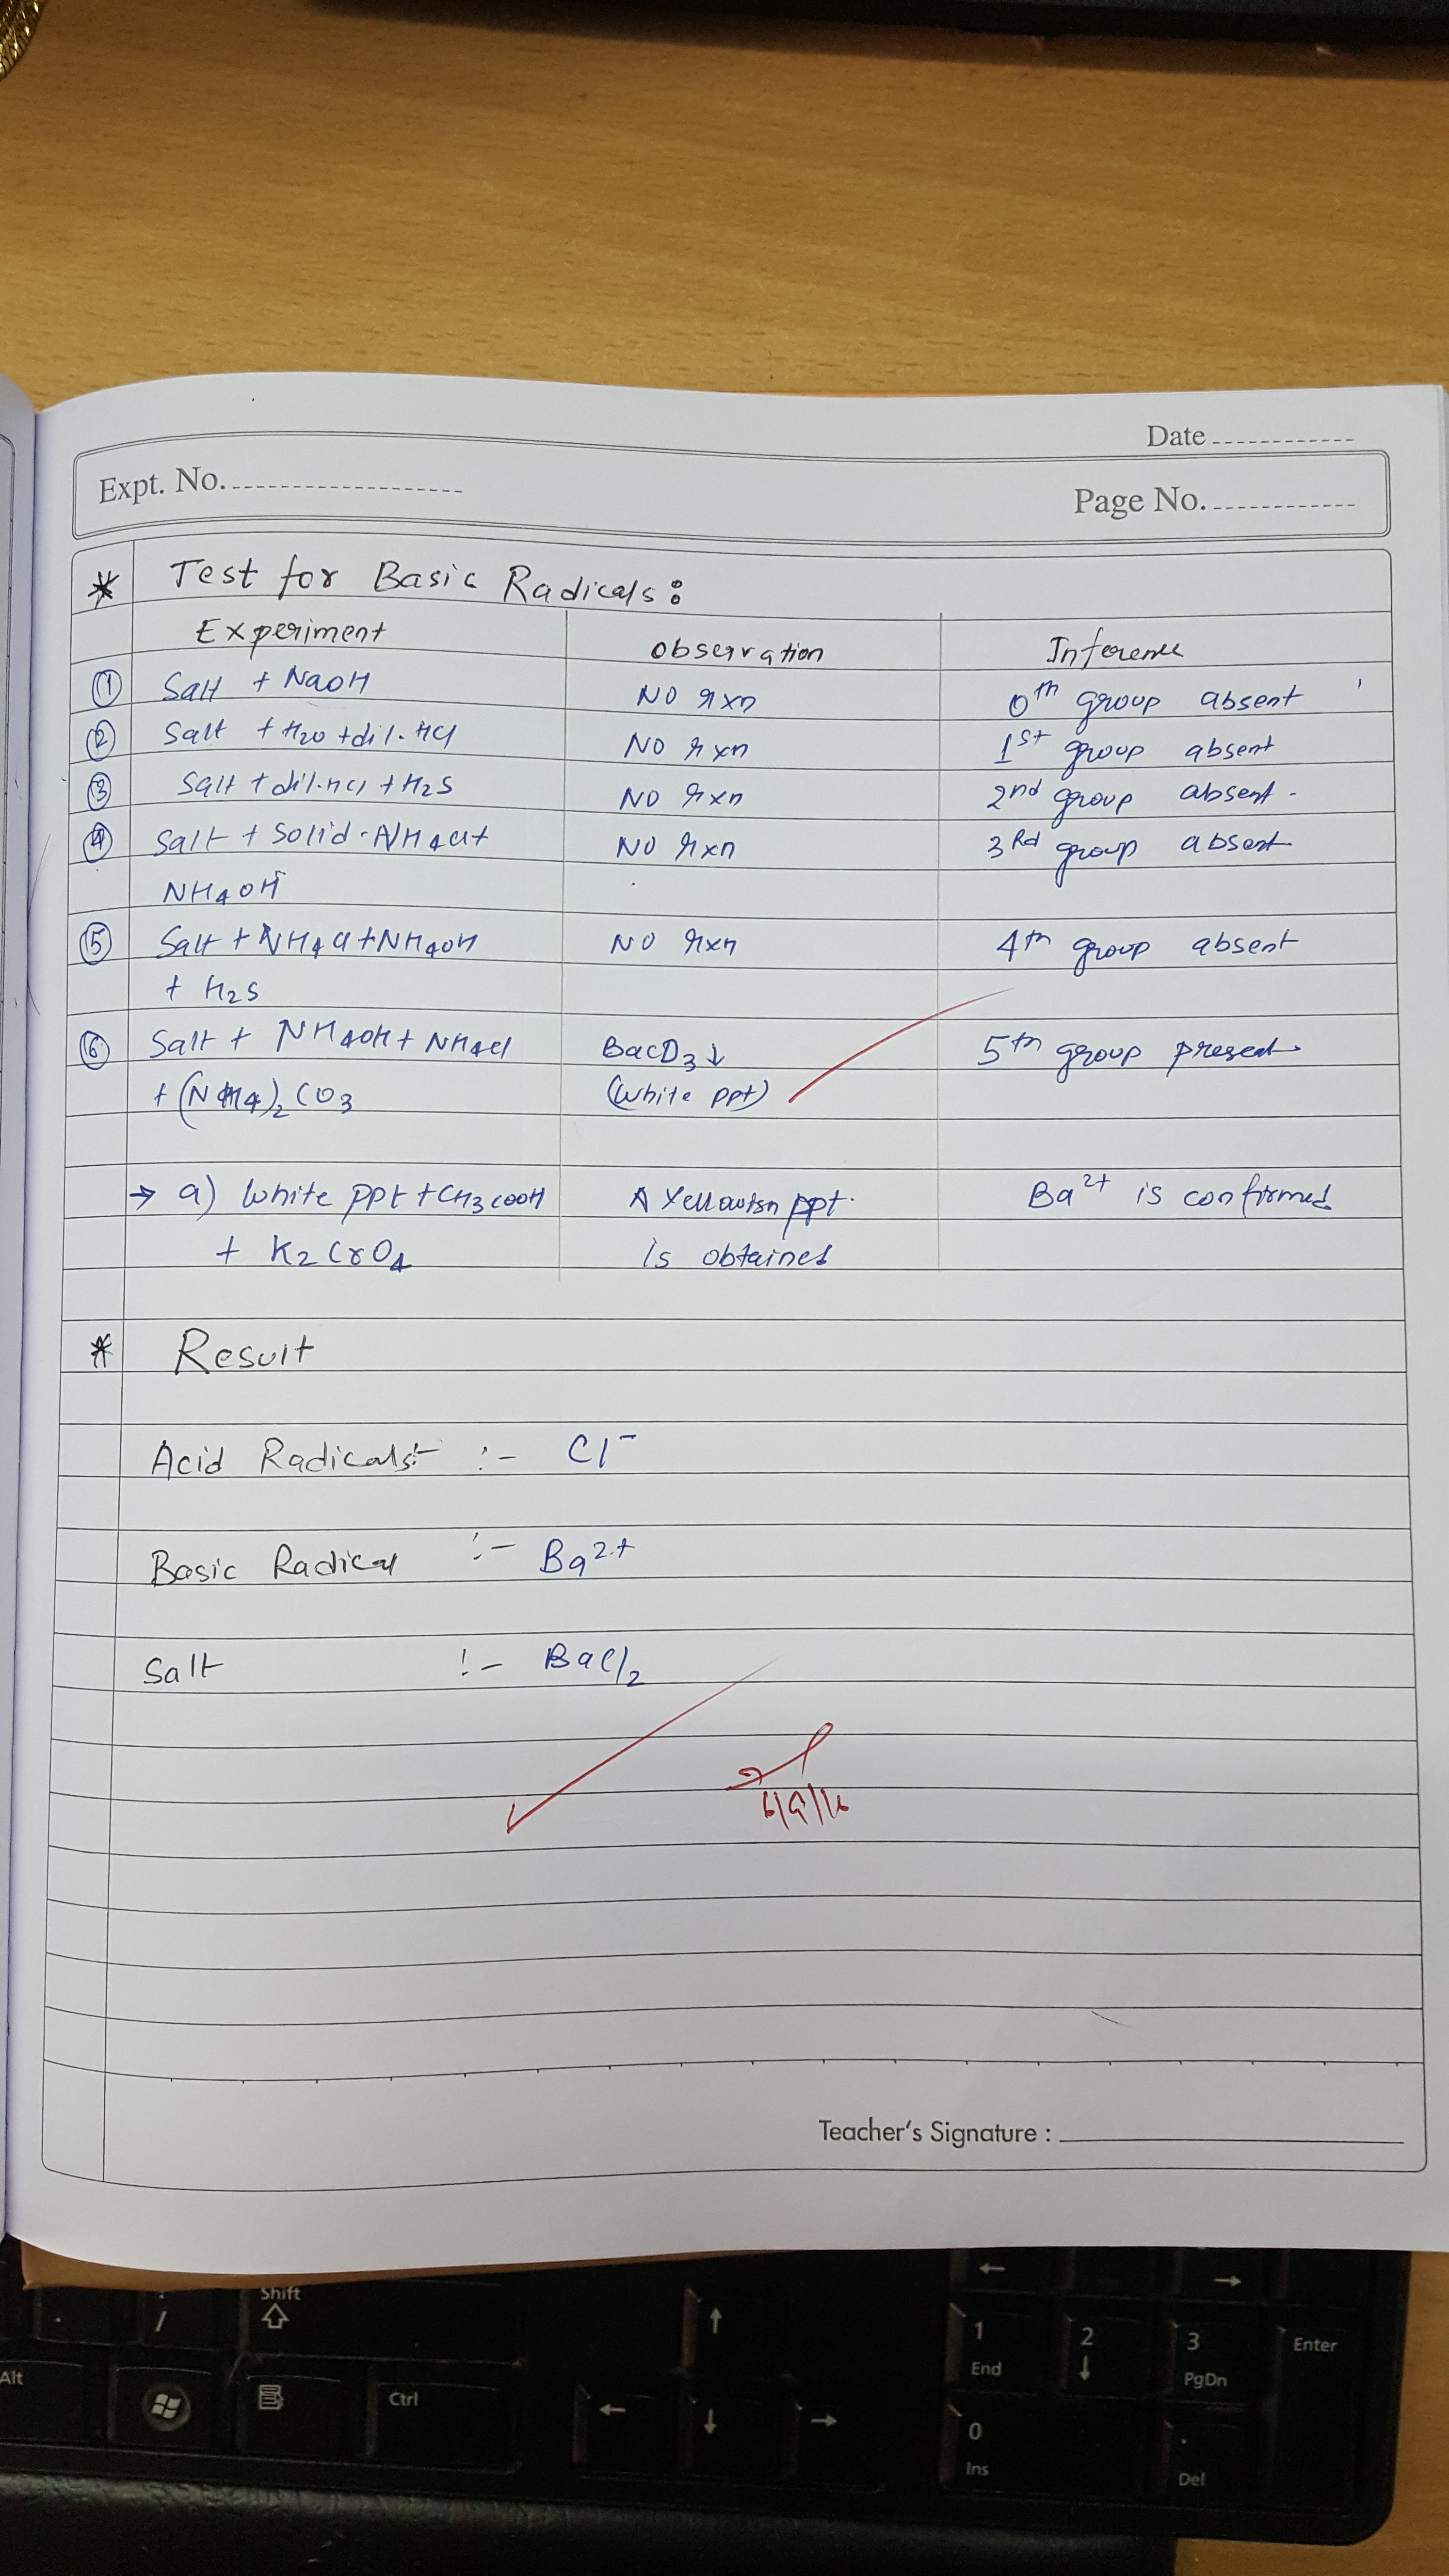 Date
Expt. No.
Page No.
* Test for Basic Radicals:
Experiment Observation Inference
① Salt + NaOH No rxn 0th group absent
② Salt + H2O + dil. HCl No rxn 1st group absent
③ Salt + dil. HCl + H2S No rxn 2nd group absent.
④ Salt + Solid. NH4Cl + No rxn 3Rd group absent
NH4OH
⑤ Salt + NH4Cl + NH4OH No rxn 4th group absent
+ H2S
⑥ Salt + NH4OH + NH4Cl BaCO3↓ 5th group present
+ (NH4)2CO3 (White ppt)
→ a) White ppt + CH3COOH A Yellowish ppt. Ba2+ is confirmed
+ K2CrO4 is obtained
* Result
Acid Radicals :- Cl-
Basic Radical :- Ba2+
Salt :- BaCl2
6/9/16
Teacher's Signature :
Shift
/
Alt
Ctrl
1 2 3 Enter
End PgDn
0 .
Ins Del